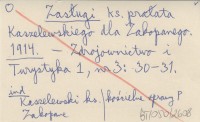 Zasługi ks. prałata
Kaszelewskiego dla Zakopanego.
1914. – Zdrojownictwo i
Turystyka 1, nr 3: 30-31.
ind
Kaszelewski ks. / kościelne sprawy P
Zakopane